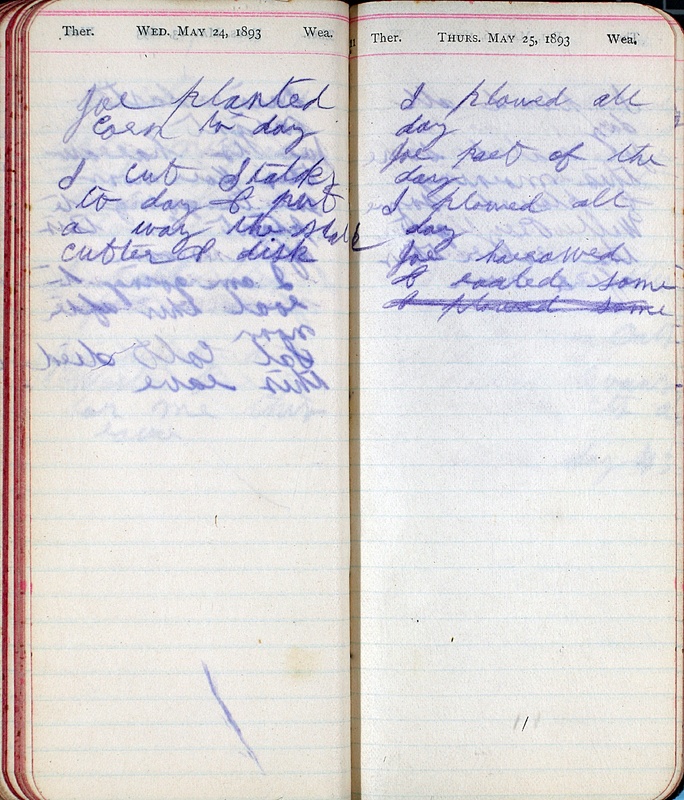 Ther. WED. MAY 24, 1893 Wea.
Joe planted
Corn to day
I cut Stalks
to day & put
a way the stalk
cutter & disk
Ther. THURS. MAY 25, 1893 Wea.
I plowed all
day
Joe part of the
day
I plowed all
day
Joe harowed
& some
& plowed some